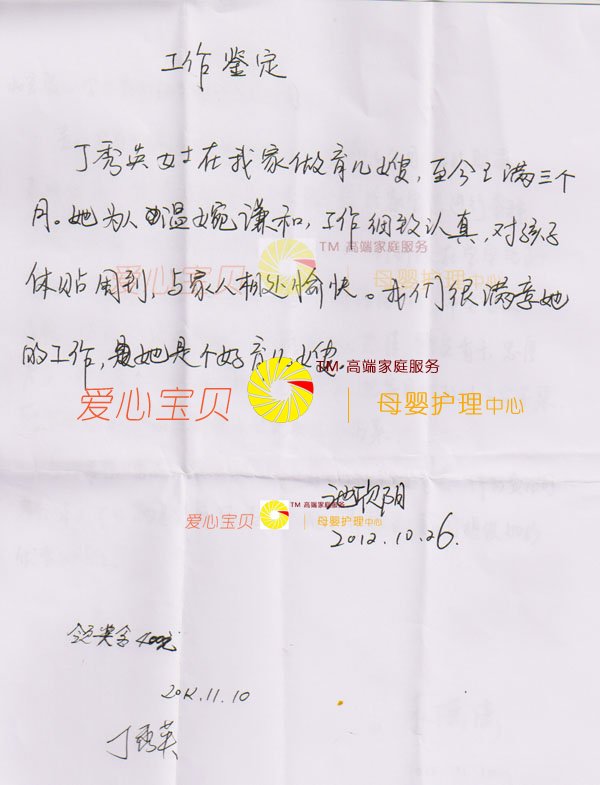 工作鉴定
丁秀英女士在我家做育儿嫂,至今已满三个
月。她为人温婉谦和,工作细致认真,对孩子
TM 高端家庭服务
爱心宝贝 | 母婴护理中心
体贴周到,与家人相处愉快。我们很满意她
的工作,她是个好育儿嫂。
TM 高端家庭服务
爱心宝贝 | 母婴护理中心
欧阳
TM 高端家庭服务
爱心宝贝 | 母婴护理中心
2012.10.26.
领奖金400元
2012.11.10
丁秀英